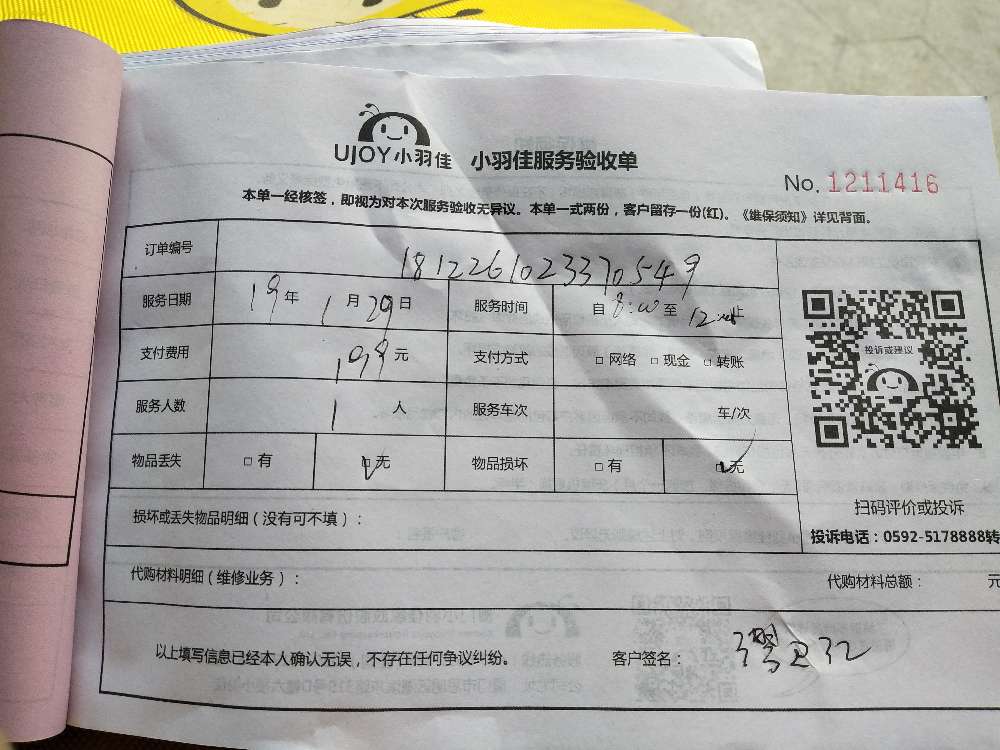 UJOY小羽佳 小羽佳服务验收单
No. 1211416
本单一经核签，即视为对本次服务验收无异议。本单一式两份，客户留存一份(红)。《维保须知》详见背面。
订单编号 1812261023370549
服务日期 19年 1月29日 服务时间 自8:00至12:00止
支付费用 199元 支付方式 □网络 □现金 □转账
服务人数 1 人 服务车次 车/次
物品丢失 □有 □无 物品损坏 □有 □无
投诉或建议
扫码评价或投诉
投诉电话：0592-5178888转
损坏或丢失物品明细（没有可不填）：
代购材料明细（维修业务）： 代购材料总额： 元
以上填写信息已经本人确认无误，不存在任何争议纠纷。 客户签名：